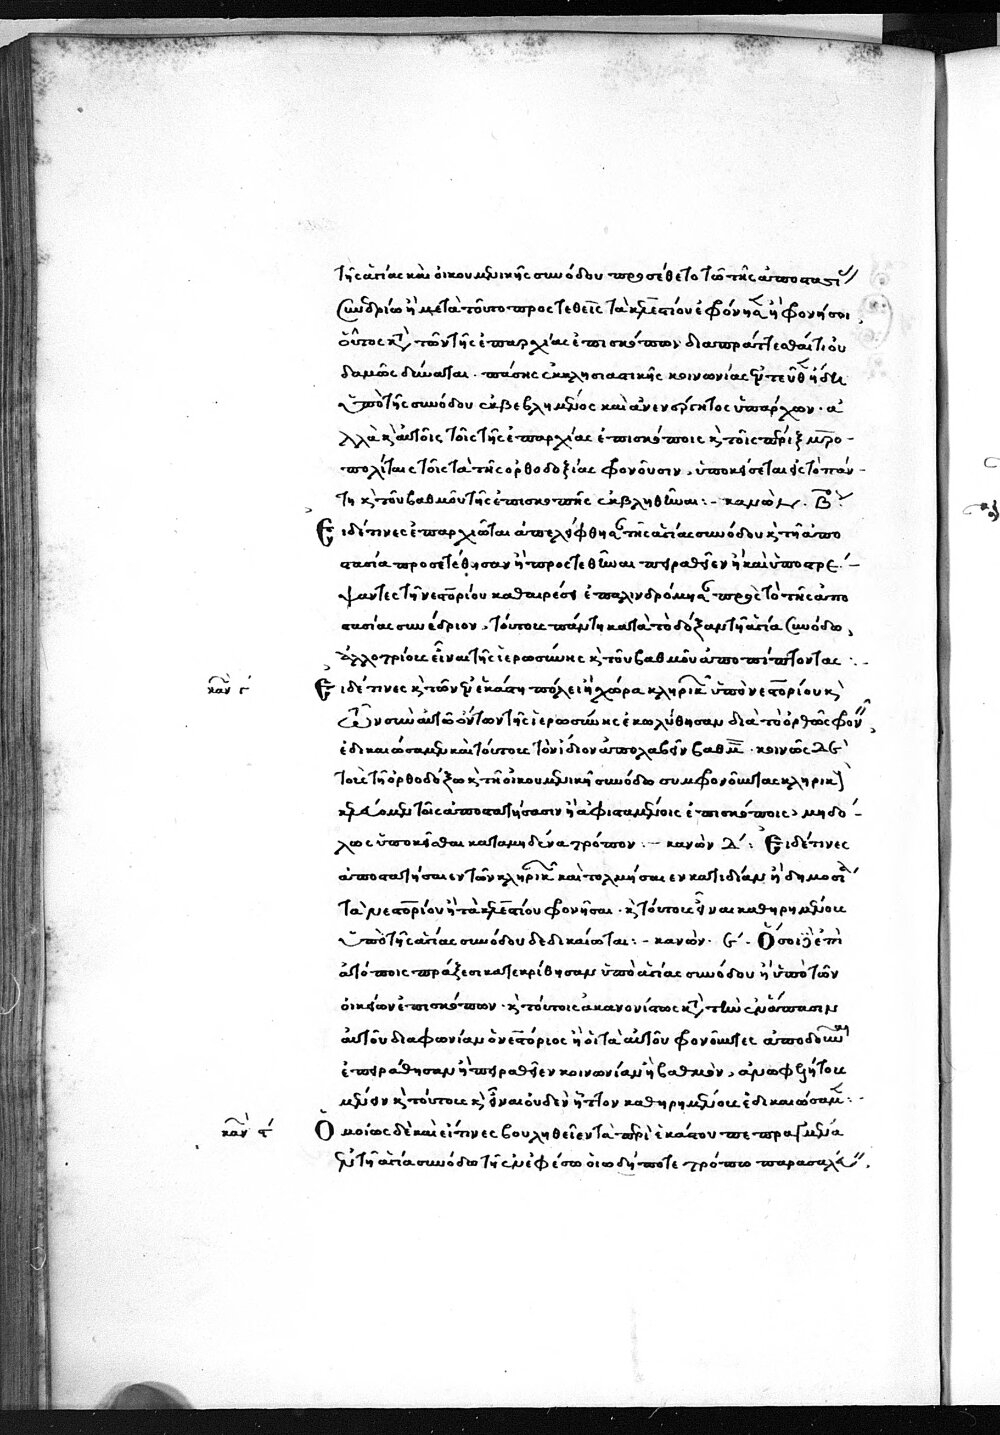 τῆς ἁγίας καὶ οἰκουμενικῆς συνόδου προσέθετο τῶ τῆς ἀποστασί
συνεδρίω ἢ μετὰ τοῦτο προστεθείη ἢ τὰ κελεστίου ἐφρόνησεν ἢ φρονήσοι
οὗτος κατὰ τῶν τῆς ἐπαρχίας ἐπισκόπων διαπράττεσθαί τι οὐ
δαμῶς δύναται. πάσης ἐκκλησιαστικῆς κοινωνίας ἐντεῦθεν ἤδη
ὑπὸ τῆς συνόδου ἐκβεβλημένος καὶ ἀνενέργητος ὑπάρχων. ἀ
λλὰ καὶ αὐτοῖς τοῖς τῆς ἐπαρχίας ἐπισκόποις καὶ τοῖς πέριξ μητρο
πολίταις τοῖς τὰ τῆς ὀρθοδοξίας φρονοῦσιν, ὑποκείσεται εἰς τὸ πάν
τη καὶ τοῦ βαθμοῦ τῆς ἐπισκοπῆς ἐκβληθῆναι:- κανὼν. Β
Εἰ δέ τινες ἐπαρχιῶται ἀπελείφθησαν τῆς ἁγίας συνόδου καὶ τῆ ἀπο
στασία προσετέθησαν ἢ προστεθῆναι πειραθεῖεν ἢ καὶ ὑποστρέ
ψαντες τῆ νεστορίου καθαιρέσει ἐπαλινδρόμησαν πρὸς τὸ τῆς ἀπο
στασίας συνέδριον, τούτους πάντη κατὰ τὸ δόξαν τῆ ἁγία συνόδω,
ἀλλοτρίους εἶναι τῆς ἱερωσύνης καὶ τοῦ βαθμοῦ ἀποπίπτοντας:-
καν γ Εἰ δέ τινες καὶ τῶν ἐν ἑκάστη πόλει ἢ χώρα κληρικῶν ὑπὸ νεστορίου καὶ
τῶν σὺν αὐτῶ ὄντων τῆς ἱερωσύνης ἐκωλύθησαν διὰ τὸ ὀρθῶς φρονεῖν
ἐδικαιώσαμεν καὶ τούτους τὸν ἴδιον ἀπολαβεῖν βαθμόν. κοινῶς δὲ
τοὺς τῆ ὀρθοδόξω καὶ τῆ οἰκουμενικῆ συνόδω συμφρονοῦντας κληρικοὺς
κελεύομεν τοῖς ἀποστατήσασιν ἢ ἀφισταμένοις ἐπισκόποις, μηδό
λως ὑποκεῖσθαι κατὰ μηδένα τρόπον:- κανὼν Δ: Εἰ δέ τινες
ἀποστατήσαιεν τῶν κληρικῶν καὶ τολμήσαιεν κατ᾽ ἰδίαν ἢ δημοσία
τὰ νεστορίου ἢ τὰ κελεστίου φρονῆσαι. καὶ τούτους εἶναι καθηρημένους
ὑπὸ τῆς ἁγίας συνόδου δεδικαίωται:- κανὼν. Ὅσοι δὲ ἐπὶ
ἀτόποις πράξεσι κατεκρίθησαν ὑπὸ ἁγίας συνόδου ἢ ὑπὸ τῶν
οἰκείων ἐπισκόπων. καὶ τούτοις ἀκανονίστως κατὰ τὴν ἐν ἅπασιν
αὐτοῦ διαφωνίαν ὁ νεστόριος ἢ οἱ τὰ αὐτοῦ φρονοῦντες ἀποδοῦναι
ἐπειράθησαν ἢ πειραθεῖεν κοινωνίαν ἢ βαθμὸν, ἀνωφελήτους
μένειν καὶ τούτους καὶ εἶναι οὐδὲν ἧττον καθηρημένους ἐδικαιώσαμεν:-
καν ϛ Ὁμοίως δὲ καὶ εἴ τινες βουληθεῖεν τὰ περὶ ἑκάστου πεπραγμένα
ἐν τῆ ἁγία συνόδω τῆς ἐν ἐφέσω οἱωδήποτε τρόπω παρασαλεύειν,